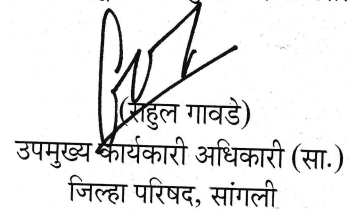 (राहुल गावडे)
उपमुख्य कार्यकारी अधिकारी (सा.)
जिल्हा परिषद, सांगली